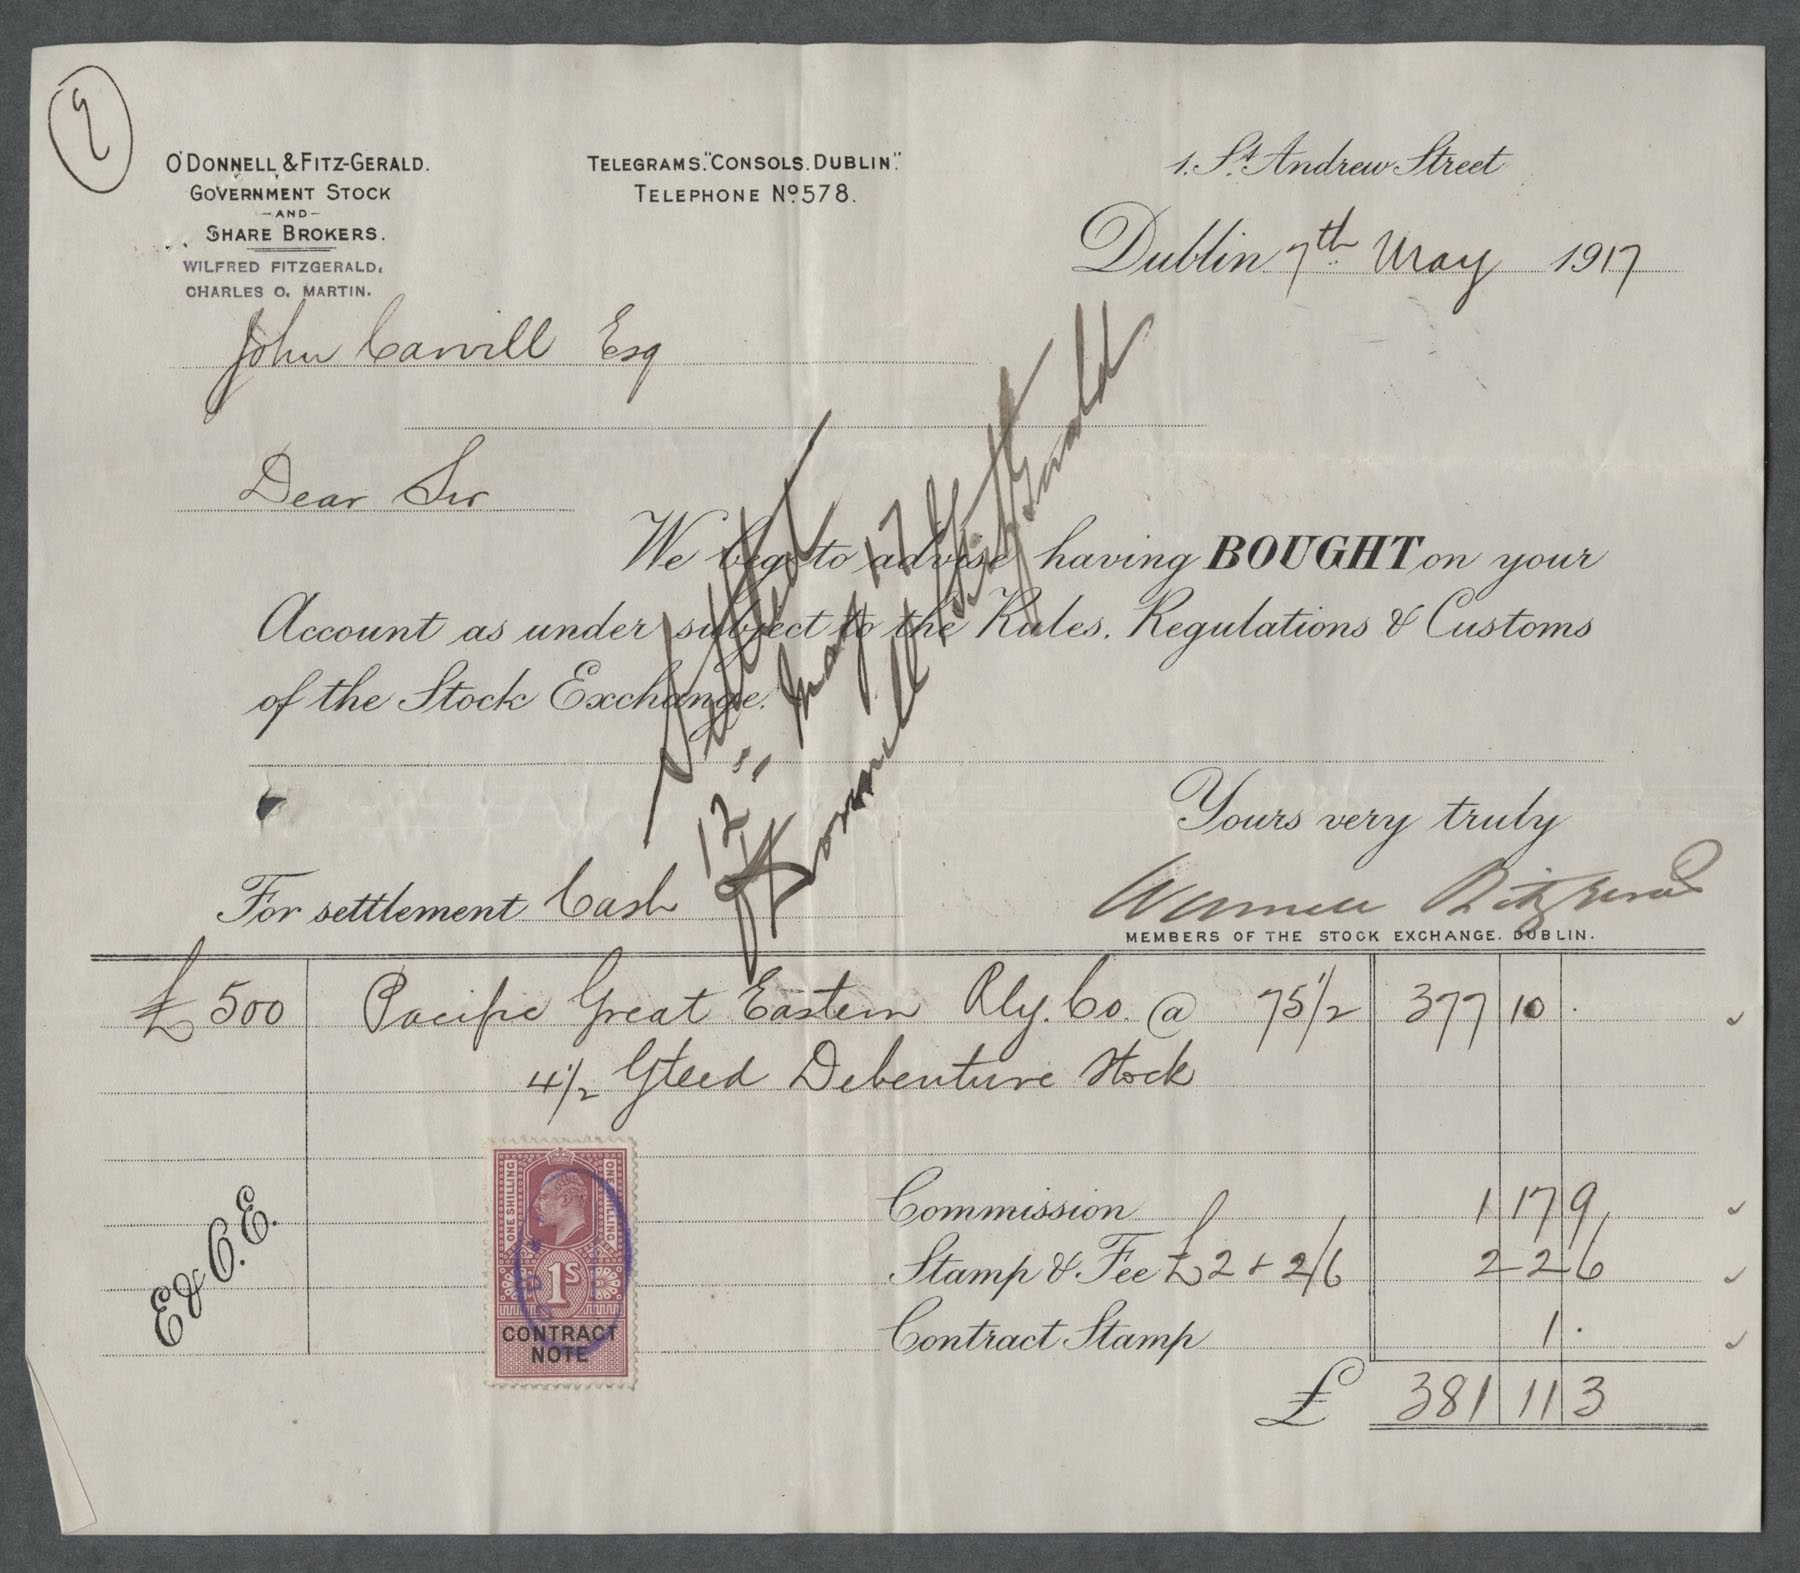 9
O'DONNELL & FITZ-GERALD.
GOVERNMENT STOCK
—AND—
SHARE BROKERS.
WILFRED FITZGERALD,
CHARLES O. MARTIN.
TELEGRAMS. "CONSOLS. DUBLIN".
TELEPHONE No. 578.
1. St. Andrew Street
Dublin 7th May 1917
John Carvill Esq
Dear Sir
We beg to advise having BOUGHT on your
Account as under subject to the Rules, Regulations & Customs
of the Stock Exchange.
Settled
12th May 17
O'Donnell & Fitzgerald
Yours very truly
O'Donnell & Fitzgerald
For settlement Cash
MEMBERS OF THE STOCK EXCHANGE. DUBLIN.
£500 Pacific Great Eastern Rly. Co. @ 75 1/2 377 10 .
4 1/2 Gteed Debenture Stock
ONE SHILLING
ONE SHILLING
1S
CONTRACT
NOTE
E & O. E.
Commission 1 17 9
Stamp & Fee £2 + 2/6 2 2 6
Contract Stamp 1 .
£ 381 11 3